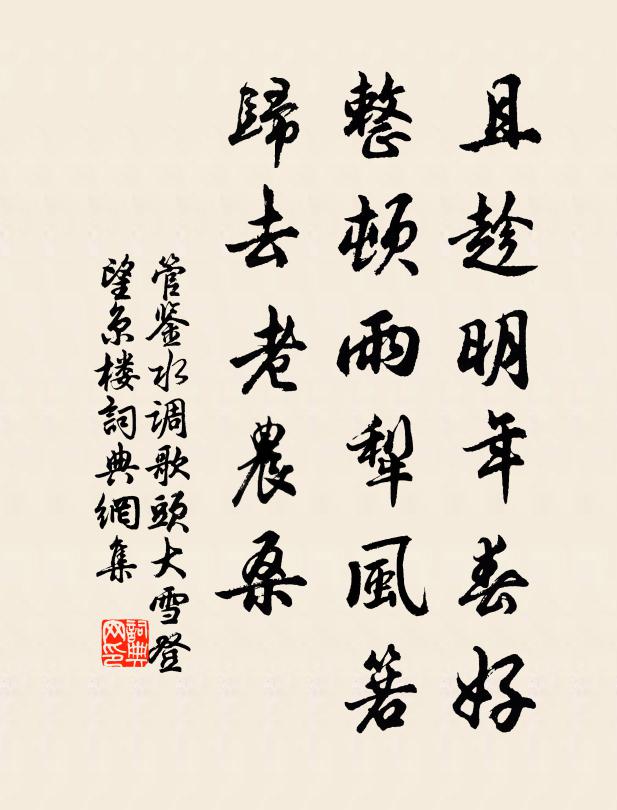 且趁明年春好
整頓雨犁風箬
歸去老農桑
管鉴水调歌頭大雪登
望京楼詞典網集
詞典
网印